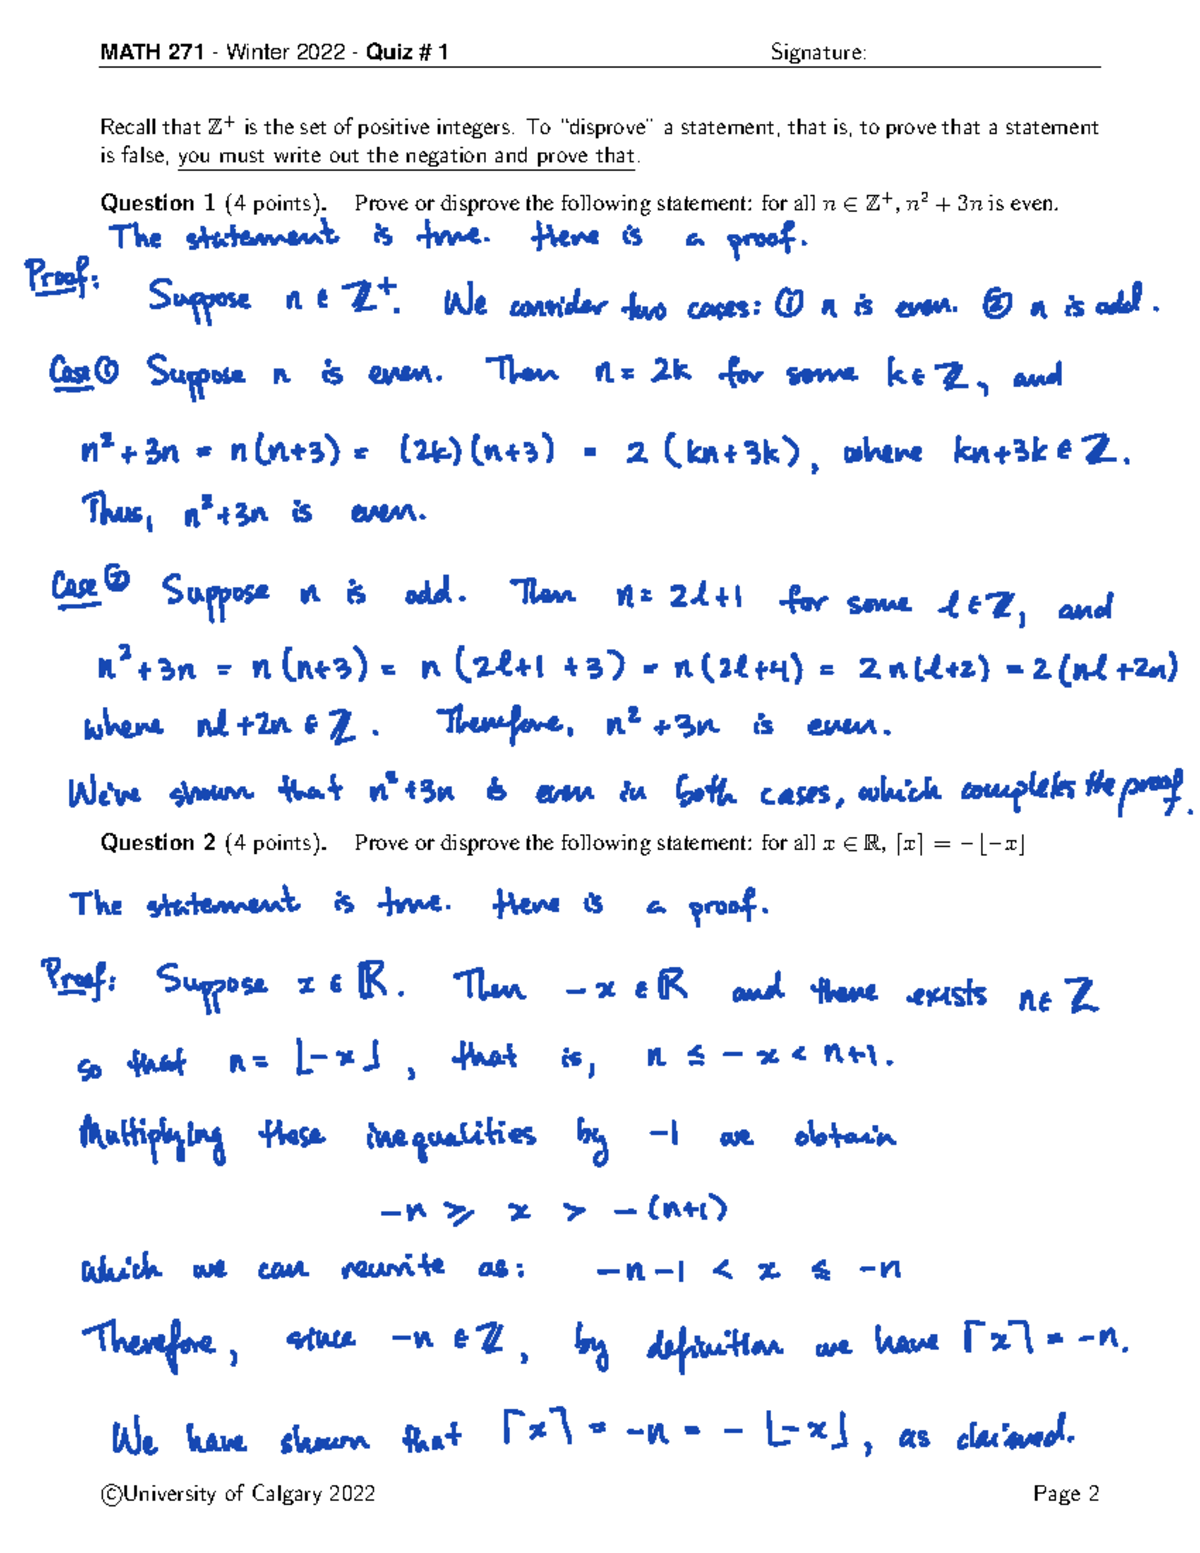 MATH 271 - Winter 2022 - Quiz # 1 Signature:
Recall that ℤ⁺ is the set of positive integers. To “disprove” a statement, that is, to prove that a statement
is false, you must write out the negation and prove that.
Question 1 (4 points). Prove or disprove the following statement: for all n ∈ ℤ⁺, n² + 3n is even.
The statement is true. Here is a proof.
Proof: Suppose n ∈ ℤ⁺. We consider two cases: ① n is even. ② n is odd.
Case ① Suppose n is even. Then n = 2k for some k ∈ ℤ, and
n² + 3n = n(n+3) = (2k)(n+3) = 2 (kn+3k), where kn+3k ∈ ℤ.
Thus, n²+3n is even.
Case ② Suppose n is odd. Then n = 2l+1 for some l ∈ ℤ, and
n²+3n = n(n+3) = n(2l+1+3) = n(2l+4) = 2n(l+2) = 2(nl+2n)
where nl+2n ∈ ℤ. Therefore, n²+3n is even.
We've shown that n²+3n is even in both cases, which completes the proof.
Question 2 (4 points). Prove or disprove the following statement: for all x ∈ ℝ, ⌈x⌉ = −⌊−x⌋
The statement is true. Here is a proof.
Proof: Suppose x ∈ ℝ. Then −x ∈ ℝ and there exists n ∈ ℤ
so that n = ⌊−x⌋, that is, n ≤ −x < n+1.
Multiplying these inequalities by −1 we obtain
−n ≥ x > −(n+1)
which we can rewrite as: −n−1 < x ≤ −n
Therefore, since −n ∈ ℤ, by definition we have ⌈x⌉ = −n.
We have shown that ⌈x⌉ = −n = −⌊−x⌋, as claimed.
©University of Calgary 2022 Page 2